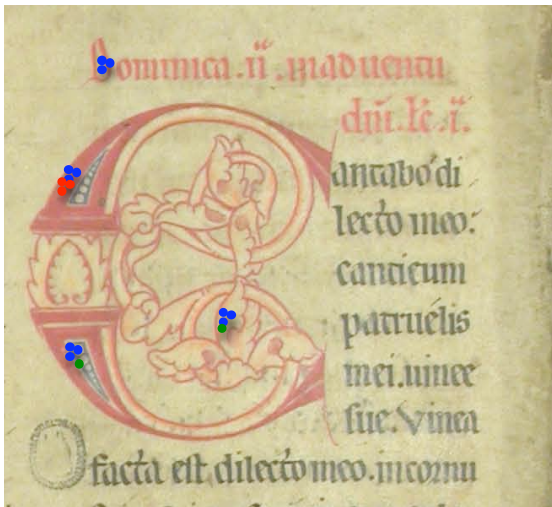 Dominica .ii. in aduentu
dñi. lc̄. i.
Cantabo di
lecto meo:
canticum
patruelis
mei. uinee
sue. Vinea
facta est dilecto meo. in cornu